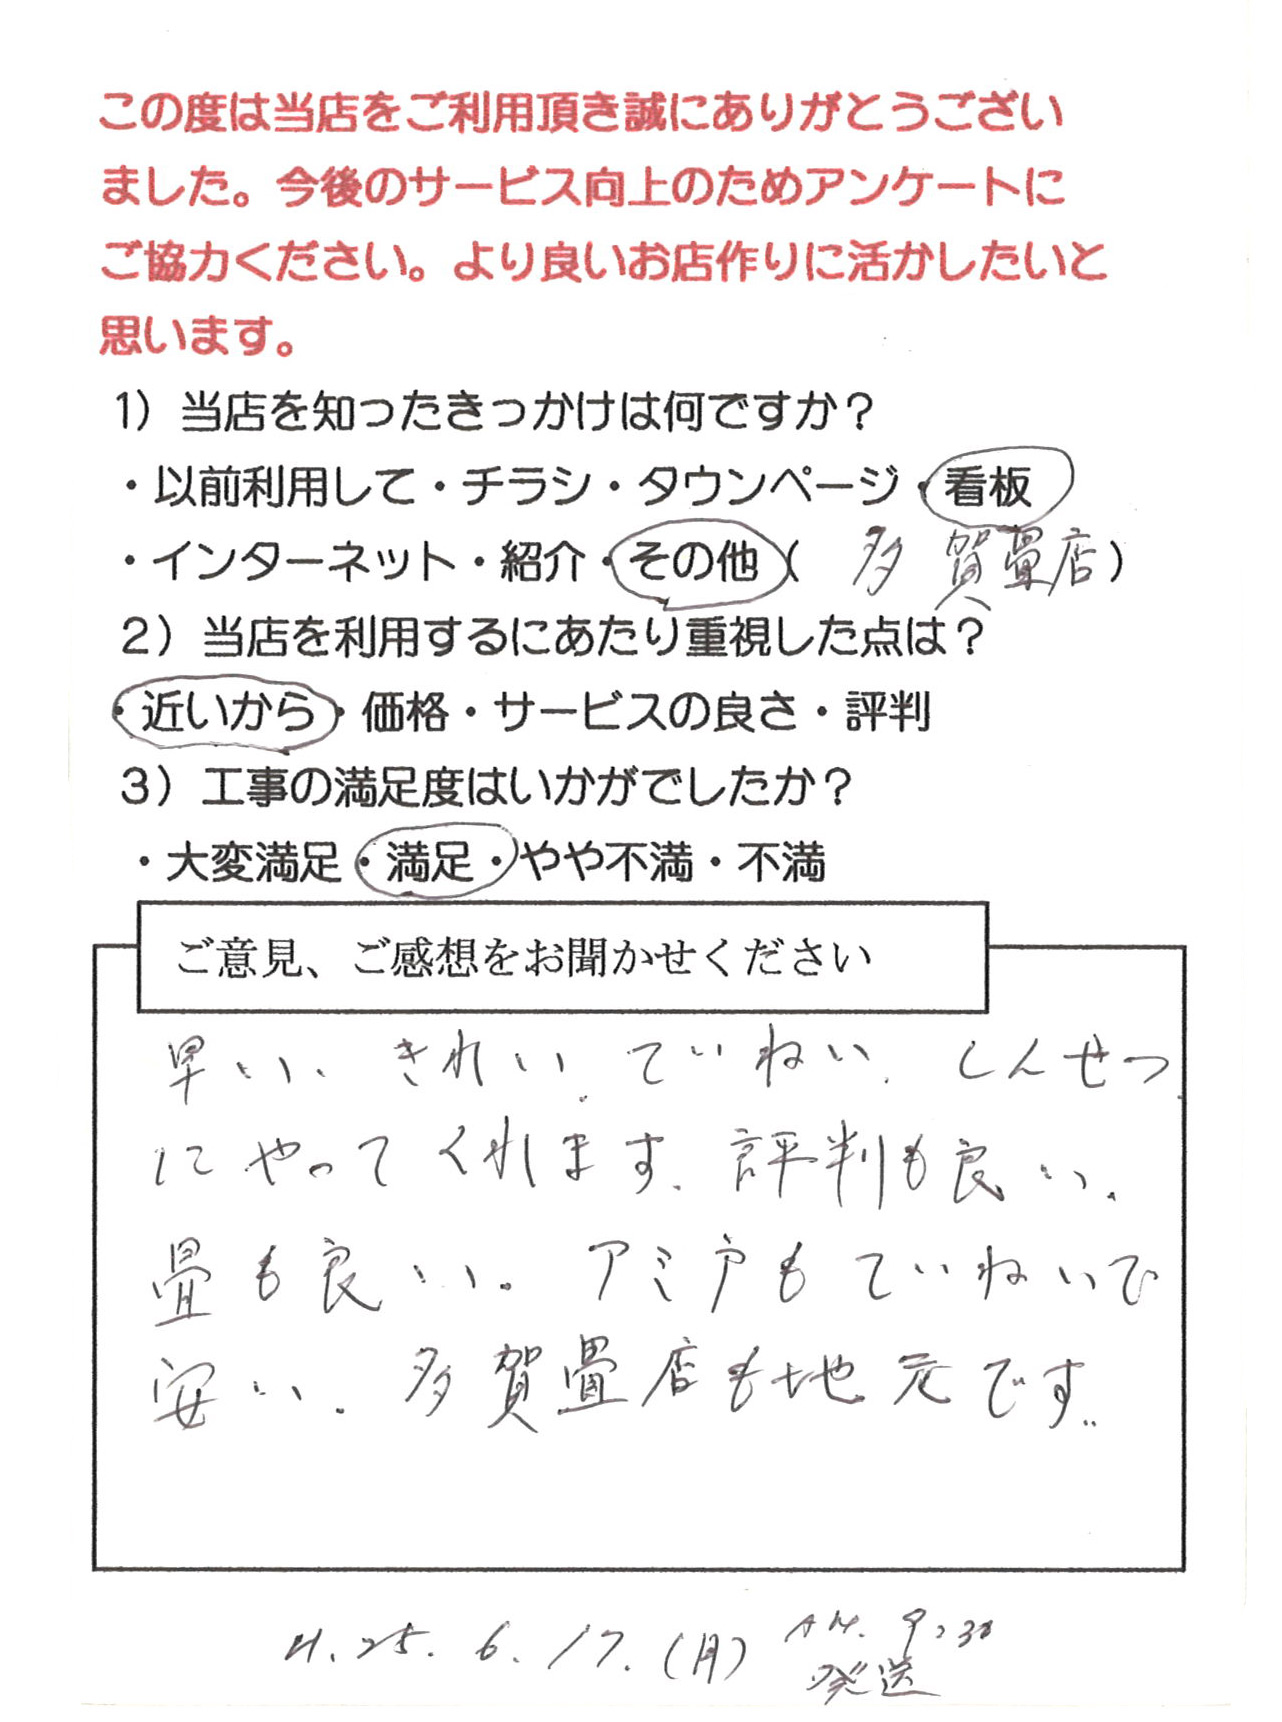 この度は当店をご利用頂き誠にありがとうござい
ました。今後のサービス向上のためアンケートに
ご協力ください。より良いお店作りに活かしたいと
思います。
1）当店を知ったきっかけは何ですか？
・以前利用して・チラシ・タウンページ・看板
・インターネット・紹介・その他（ 多賀畳店）
2）当店を利用するにあたり重視した点は？
・近いから・価格・サービスの良さ・評判
3）工事の満足度はいかがでしたか？
・大変満足・満足・やや不満・不満
ご意見、ご感想をお聞かせください
早い、きれい、ていねい、しんせつ
にやってくれます、評判も良い、
畳も良い。アミ戸もていねいで
安い、多賀畳店も地元です。
H.25.6.17.(月) AM.9:30
発送